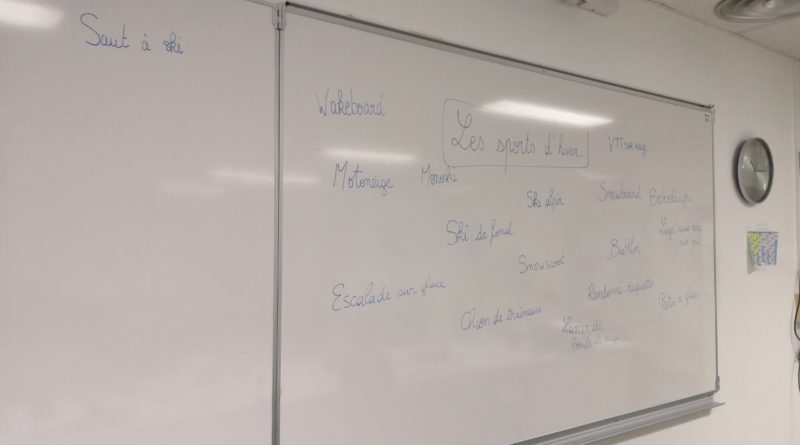 Saut à ski
Wakeboard
Les sports d'hiver.
VTT sur neige
Motoneige
Monoski
Ski alpin
Snowboard
Ski de fond
Snowscoot
Escalade sur glace
Chien de traineau
Randonnée raquette
Patin à glace
Lancer de
boule de neige